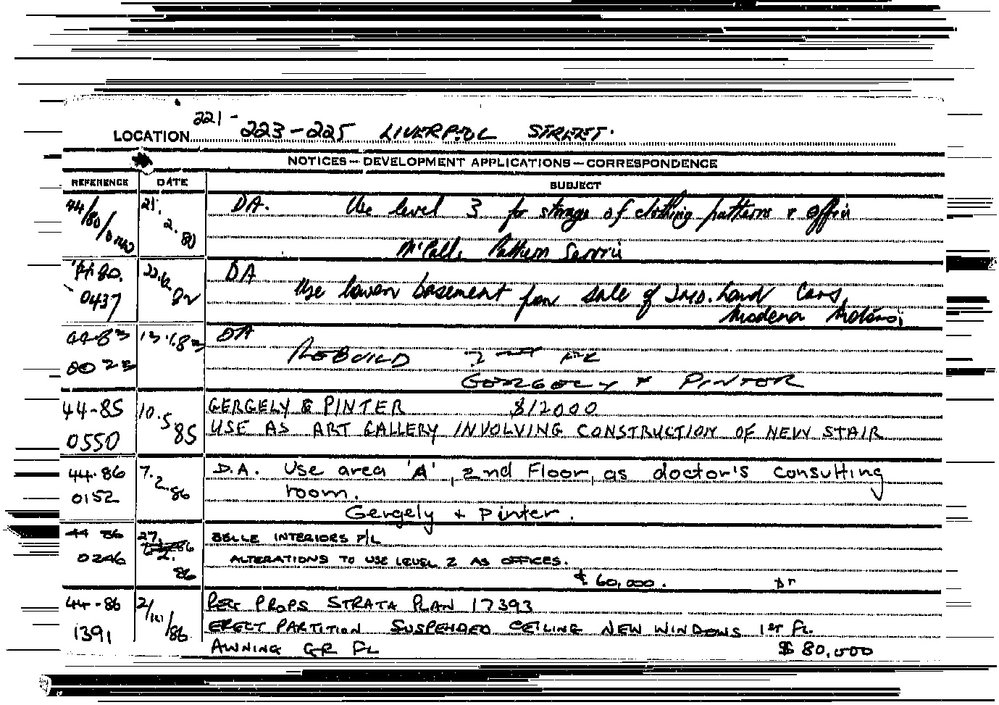 221-
LOCATION 223-225 LIVERPOOL STREET.
NOTICES — DEVELOPMENT APPLICATIONS — CORRESPONDENCE
REFERENCE DATE SUBJECT
44/80/0142 21.2.80 DA. Use level 3 for storage of clothing patterns & office
McCall, Pattern Service
44.80. 22.6.82 DA
0437 Use lower basement for sale of 2nd. hand Cars,
Modena Motors
44-83 13.1.83 DA
0025 REBUILD 2nd FL
GERGELY & PINTER
44-85 10.5.85 GERGELY & PINTER $12000
0550 USE AS ART GALLERY INVOLVING CONSTRUCTION OF NEW STAIR
44.86 7.2.86 D.A. Use area 'A', 2nd Floor, as doctor's consulting
0152 room.
Gergely + Pinter.
44 86 27.2.86 BELLE INTERIORS P/L
0246 ALTERATIONS TO USE LEVEL 2 AS OFFICES.
$60,000.
44-86 2/12/86 PROPS STRATA PLAN 17393
1391 ERECT PARTITION SUSPENDED CEILING NEW WINDOWS 1ST FL.
AWNING GR FL $80,000